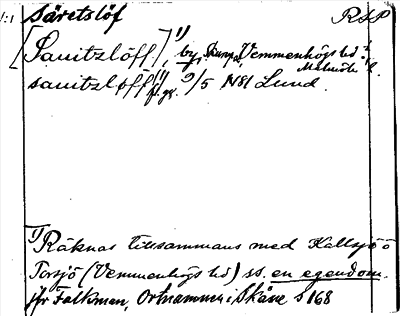 1:1 Säretslöf RSP
[Sanitzlöff]¹⁾, by, Skurup, Vemmenhögs hd
Malmöh. l.
sanitzløff fr.gr. 9/5 1481 Lund.
1) Räknas tillsammans med Kallsjö o
Torsjö (Vemmenhögs hd) ss. en egendom.
jfr Falkman, Ortnamnen i Skåne s 168